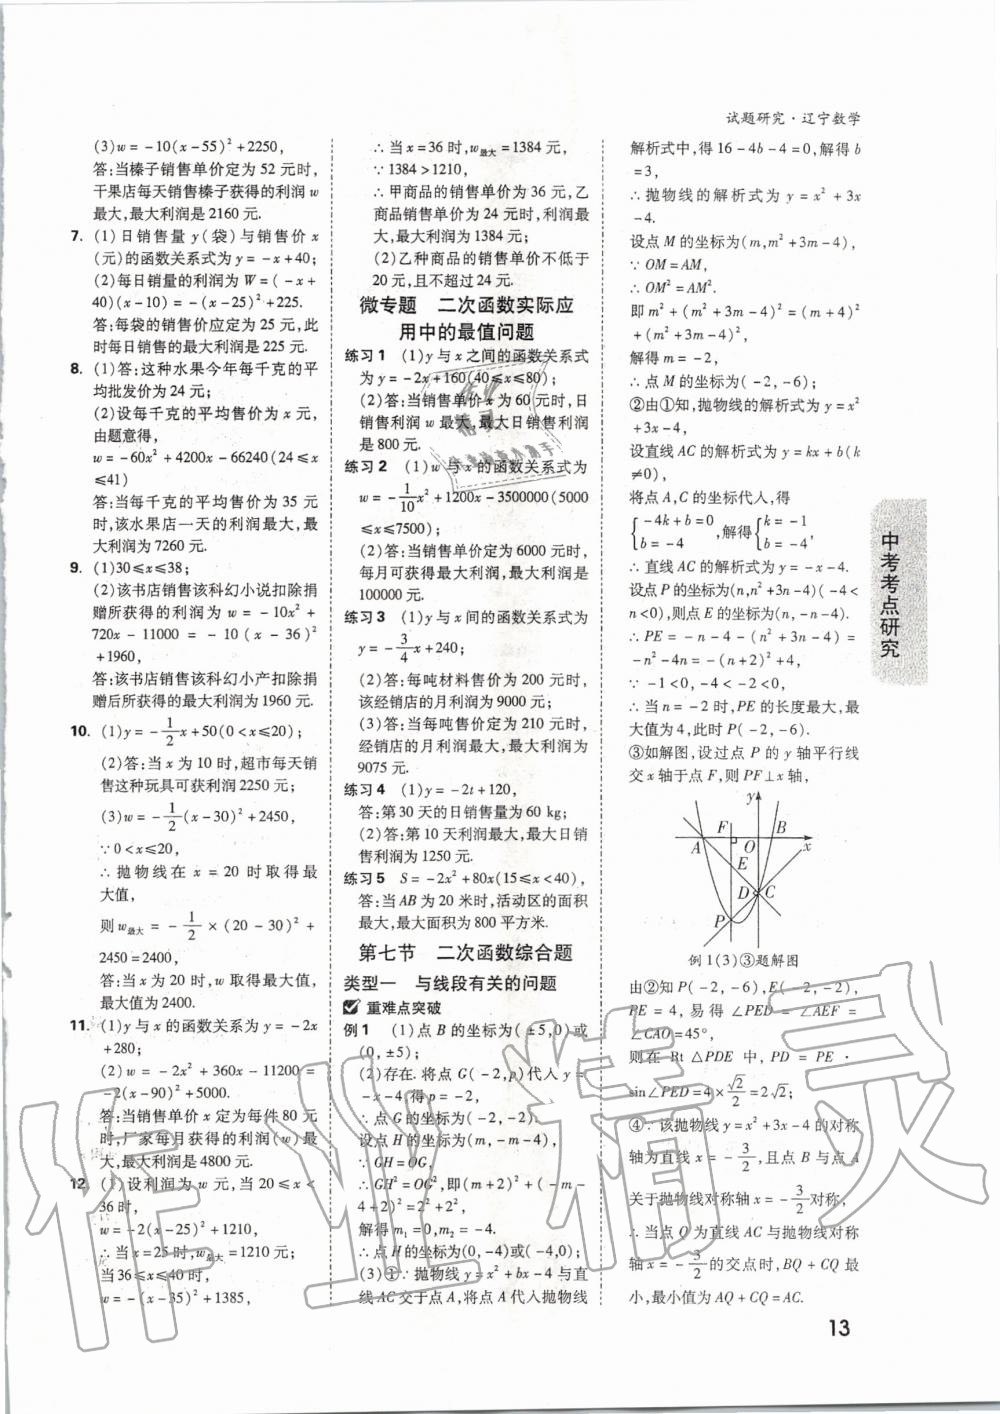 试题研究·辽宁数学
(3)w=-10(x-55)²+2250,
答:当榛子销售单价定为 52 元时,
干果店每天销售榛子获得的利润 w
最大,最大利润是 2160 元.
7. (1)日销售量 y(袋)与销售价 x
(元)的函数关系式为 y=-x+40;
(2)每日销量的利润为 W=(-x+
40)(x-10)=-(x-25)²+225.
答:每袋的销售价应定为 25 元,此
时每日销售的最大利润是 225 元.
8. (1)答:这种水果今年每千克的平
均批发价为 24 元;
(2)设每千克的平均售价为 x 元,
由题意得,
w=-60x²+4200x-66240(24≤x
≤41)
答:当每千克的平均售价为 35 元
时,该水果店一天的利润最大,最
大利润为 7260 元.
9. (1)30≤x≤38;
(2)该书店销售该科幻小说扣除捐
赠所获得的利润为 w=-10x²+
720x-11000=-10(x-36)²
+1960,
答:该书店销售该科幻小产扣除捐
赠后所获得的最大利润为 1960 元.
10. (1)y=-1/2x+50(0<x≤20);
(2)答:当 x 为 10 时,超市每天销
售这种玩具可获利润 2250 元;
(3)w=-1/2(x-30)²+2450,
∵0<x≤20,
∴抛物线在 x=20 时取得最
大值,
则 w最大=-1/2×(20-30)²+
2450=2400,
答:当 x 为 20 时,w 取得最大值,
最大值为 2400.
11. (1)y 与 x 的函数关系为 y=-2x
+280;
(2)w=-2x²+360x-11200
=-2(x-90)²+5000.
答:当销售单价 x 定为每件 80 元
时,厂家每月获得的利润(w)最
大,最大利润是 4800 元.
12. (1)设利润为 w 元,当 20≤x≤
36 时,
w=-2(x-25)²+1210,
∴当 x=25 时,w最大=1210 元;
当 36≤x≤40 时,
w=-(x-35)²+1385,
∴当 x=36 时,w最大=1384 元,
∵1384>1210,
∴甲商品的销售单价为 36 元,乙
商品销售单价为 24 元时,利润最
大,最大利润为 1384 元;
(2)乙种商品销售单价不低于
20 元,且不超过 24 元.
微专题 二次函数实际应
用中的最值问题
练习 1 (1)y 与 x 之间的函数关系式
为 y=-2x+160(40≤x≤80);
(2)答:当销售单价为 60 元时,日
销售利润 w 最大,最大日销售利润
是 800 元.
练习 2 (1)w 与 x 的函数关系式为
w=-1/10x²+1200x-3500000(5000
≤x≤7500);
(2)答:当销售单价为 6000 元时,
每月可获得最大利润,最大利润是
100000 元.
练习 3 (1)y 与 x 间的函数关系式为
y=-3/4x+240;
(2)答:每吨材料售价为 200 元时,
该经销店的月利润为 9000 元.
(3)答:当每吨售价定为 210 元时,
经销店的月利润最大,最大利润为
9075 元.
练习 4 (1)y=-2t+120,
答:第 30 天的日销售量为 60 kg;
(2)答:第 10 天利润最大,最大日销
售利润为 1250 元.
练习 5 S=-2x²+80x(15≤x<40),
答:当 AB 为 20 米时,活动区的面积
最大,最大面积为 800 平方米.
第七节 二次函数综合题
类型一 与线段有关的问题
重难点突破
例 1 (1)点 B 的坐标为(±5,0)或
(0,±5);
(2)存在.将点 G(-2,p)代入 y=
-x-4 得 p=-2,
∴点 G 的坐标为(-2,-2).
设点 H 的坐标为(m,-m-4),
∵GH=OG,
∴GH²=OG²,即(m+2)²+(-m-
4+2)²=2²+2²,
解得 m₁=0,m₂=-4.
∴点 H 的坐标为(0,-4)或(-4,0);
(3)①∵抛物线 y=x²+bx-4 与直
线 AC 交于点 A,将点 A 代入抛物线
解析式中,得 16-4b-4=0,解得 b
=3,
∴抛物线的解析式为 y=x²+3x
-4.
设点 M 的坐标为(m,m²+3m-4),
∵OM=AM,
∴OM²=AM².
即 m²+(m²+3m-4)²=(m+4)²
+(m²+3m-4)²,
解得 m=-2,
∴点 M 的坐标为(-2,-6);
②由①知,抛物线的解析式为 y=x²
+3x-4,
设直线 AC 的解析式为 y=kx+b(k
≠0),
将点 A,C 的坐标代入,得
{-4k+b=0, b=-4 ,解得{k=-1, b=-4
∴直线 AC 的解析式为 y=-x-4.
设点 P 的坐标为(n,n²+3n-4)(-4<
n<0),则点 E 的坐标为(n,-n-4).
∴PE=-n-4-(n²+3n-4)=
-n²-4n=-(n+2)²+4,
∵-1<0,-4<n<0,
∴当 n=-2 时,PE 的长度最大,最
大值为 4,此时 P(-2,-6).
③如解图,设过点 P 的 y 轴平行线
交 x 轴于点 F,则 PF⊥x 轴,
y
F
B
A
O
x
E
D
C
P
例 1(3)③题解图
由②知 P(-2,-6),E(-2,-2),
PE=4,易得∠PED=∠AEF=
∠CAO=45°,
则在 Rt△PDE 中,PD=PE·
sin∠PED=4×√2/2=2√2;
④∵该抛物线 y=x²+3x-4 的对称
轴为直线 x=-3/2,且点 B 与点 A
关于抛物线对称轴 x=-3/2对称,
∴当点 Q 为直线 AC 与抛物线对称
轴 x=-3/2的交点时,BQ+CQ 最
小,最小值为 AQ+CQ=AC.
中考考点研究
13
作业精灵